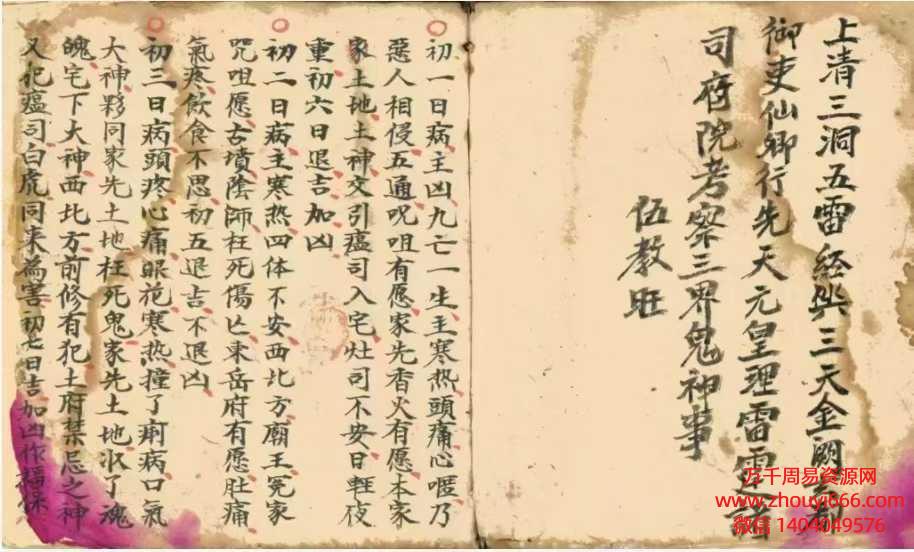 上清三洞五雷经箓三天金阙
御吏仙卿行先天元皇理雷霆諸
司府院考察三界鬼神事
伍教旺
初一日病主凶九亡一生主寒热頭痛心嘔乃
惡人相侵五通呪咀有愿家先香火有愿本家
家土地土神交引瘟司入宅灶司不安日輕夜
重初六日退吉加凶
初二日病主寒熱四体不安西北方廟王冤家
咒咀愿古墳陰師枉死傷亡東岳府有愿肚痛
氣疼飲食不思初五退吉不退凶
初三日病頭疼心痛眼花寒热撞了痢病口氣
大神夥同家先土地枉死鬼家先土地收了魂
魄宅下大神西北方前修有犯土府禁忌之神
又犯瘟司白虎同来為害初七日吉加凶作福保
万千周易资源网
www.zhouyi666.com
微信 1404049576